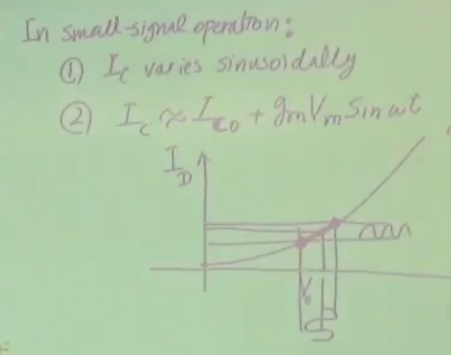 In small-signal operation:
① I_C varies sinusoidally
② I_C ≈ I_C0 + g_m V_m Sin ωt
I_D
V_0